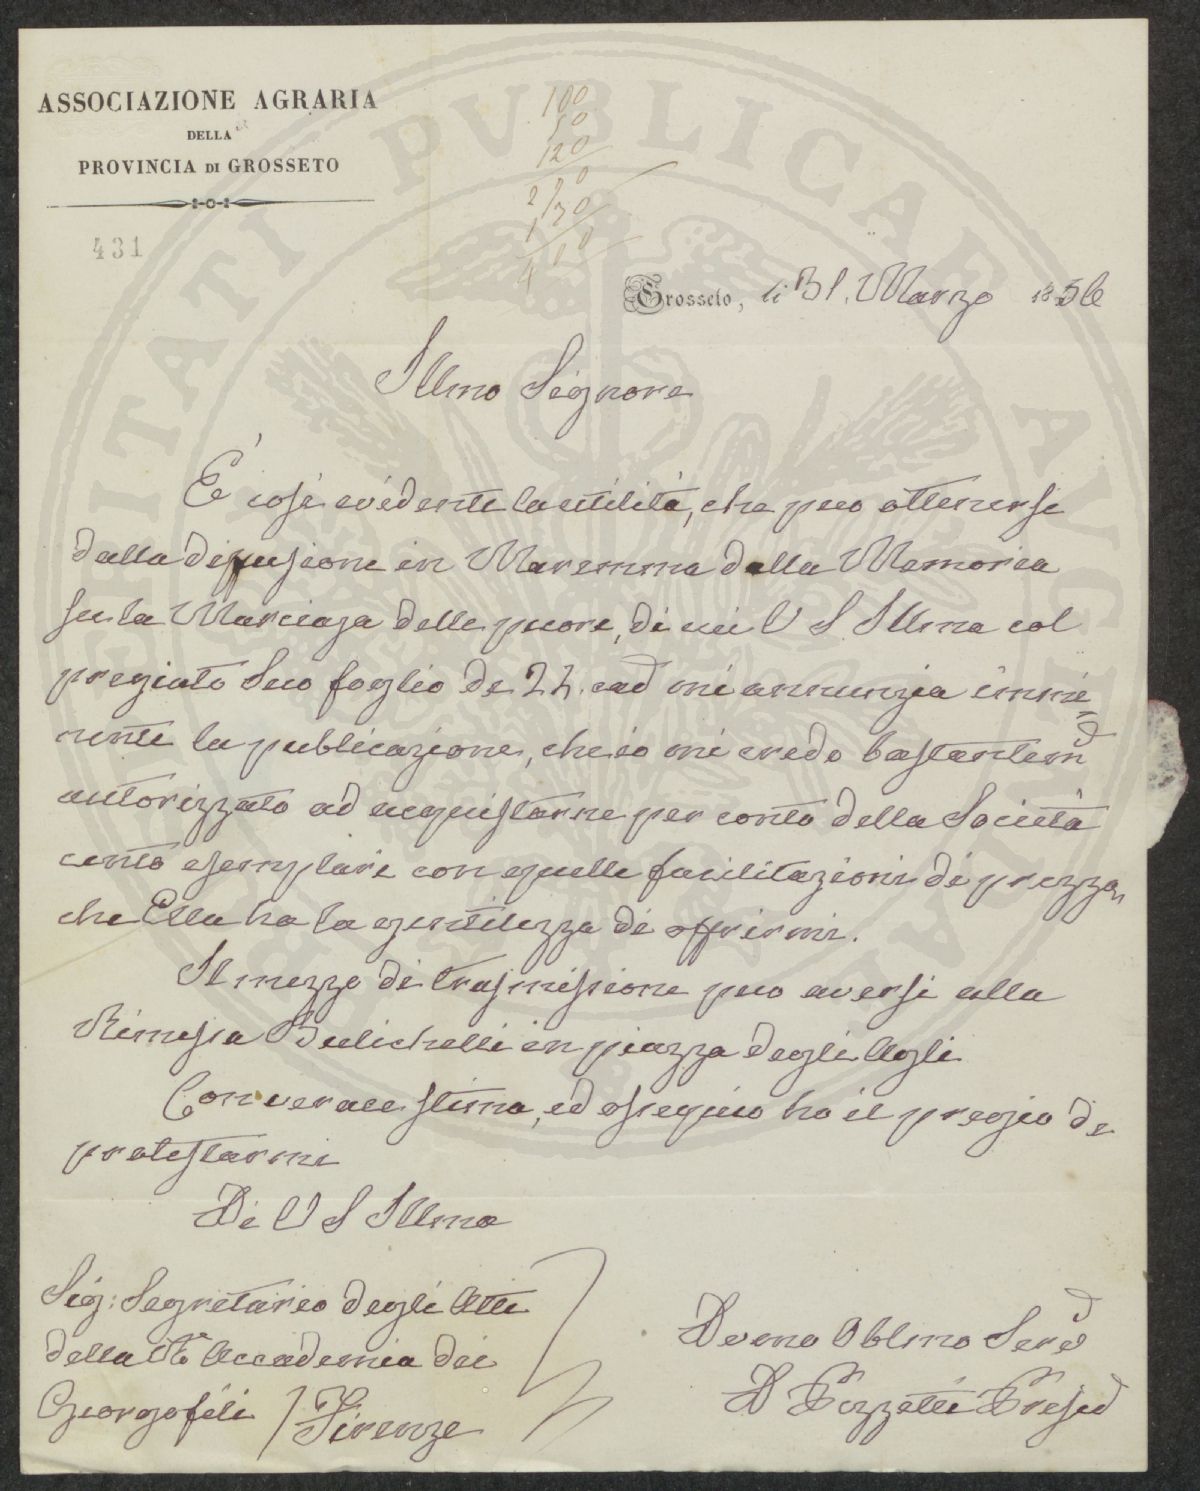 ASSOCIAZIONE AGRARIA
DELLA
PROVINCIA DI GROSSETO
431
100
50
120
Grosseto, li 31. Marzo 1856
Illmo Signore
È così evidente la utilità, che puo ottenersi
dalla difusione in Maremma della Memoria
su la Marciaja delle pecore, di cui V S Illma col
pregiato Suo foglio de 24. cad mi annunzia immi=
nente la pubblicazione, che io mi credo bastantem
autorizzato ad acquistarne per conto della Società
cento esemplari con quelle facilitazioni di prezzo,
che Ella ha la gentilezza di offrirmi.
Il mezzo di trasmissione puo aversi alla
Rimessa Bulichelli in piazza degli Agli
Con verace stima, ed ossequio ho il pregio di
protestarmi
Di V S Illma
Sig: Segretario degli Atti
della R. Accademia dei
Georgofili / Firenze
Devmo Oblmo Serv
D Pizzetti Presid
PVBLICAE